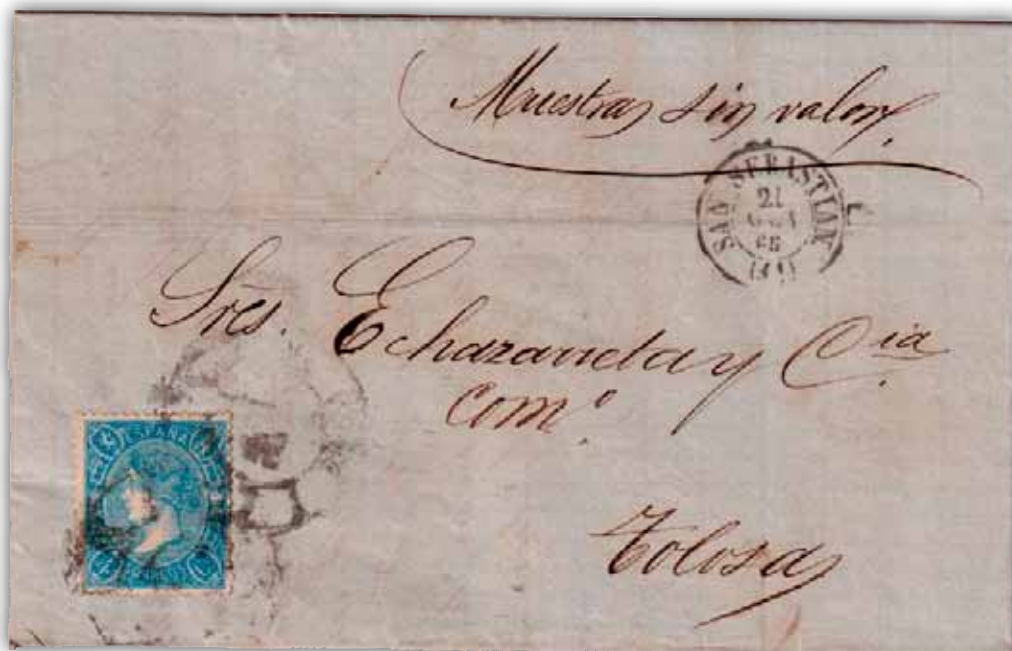 Muestras sin valor.
SAN SEBASTIAN
21
65
(41)
Sres. Echazarreta y Cia
Com.º
Tolosa
ESPAÑA